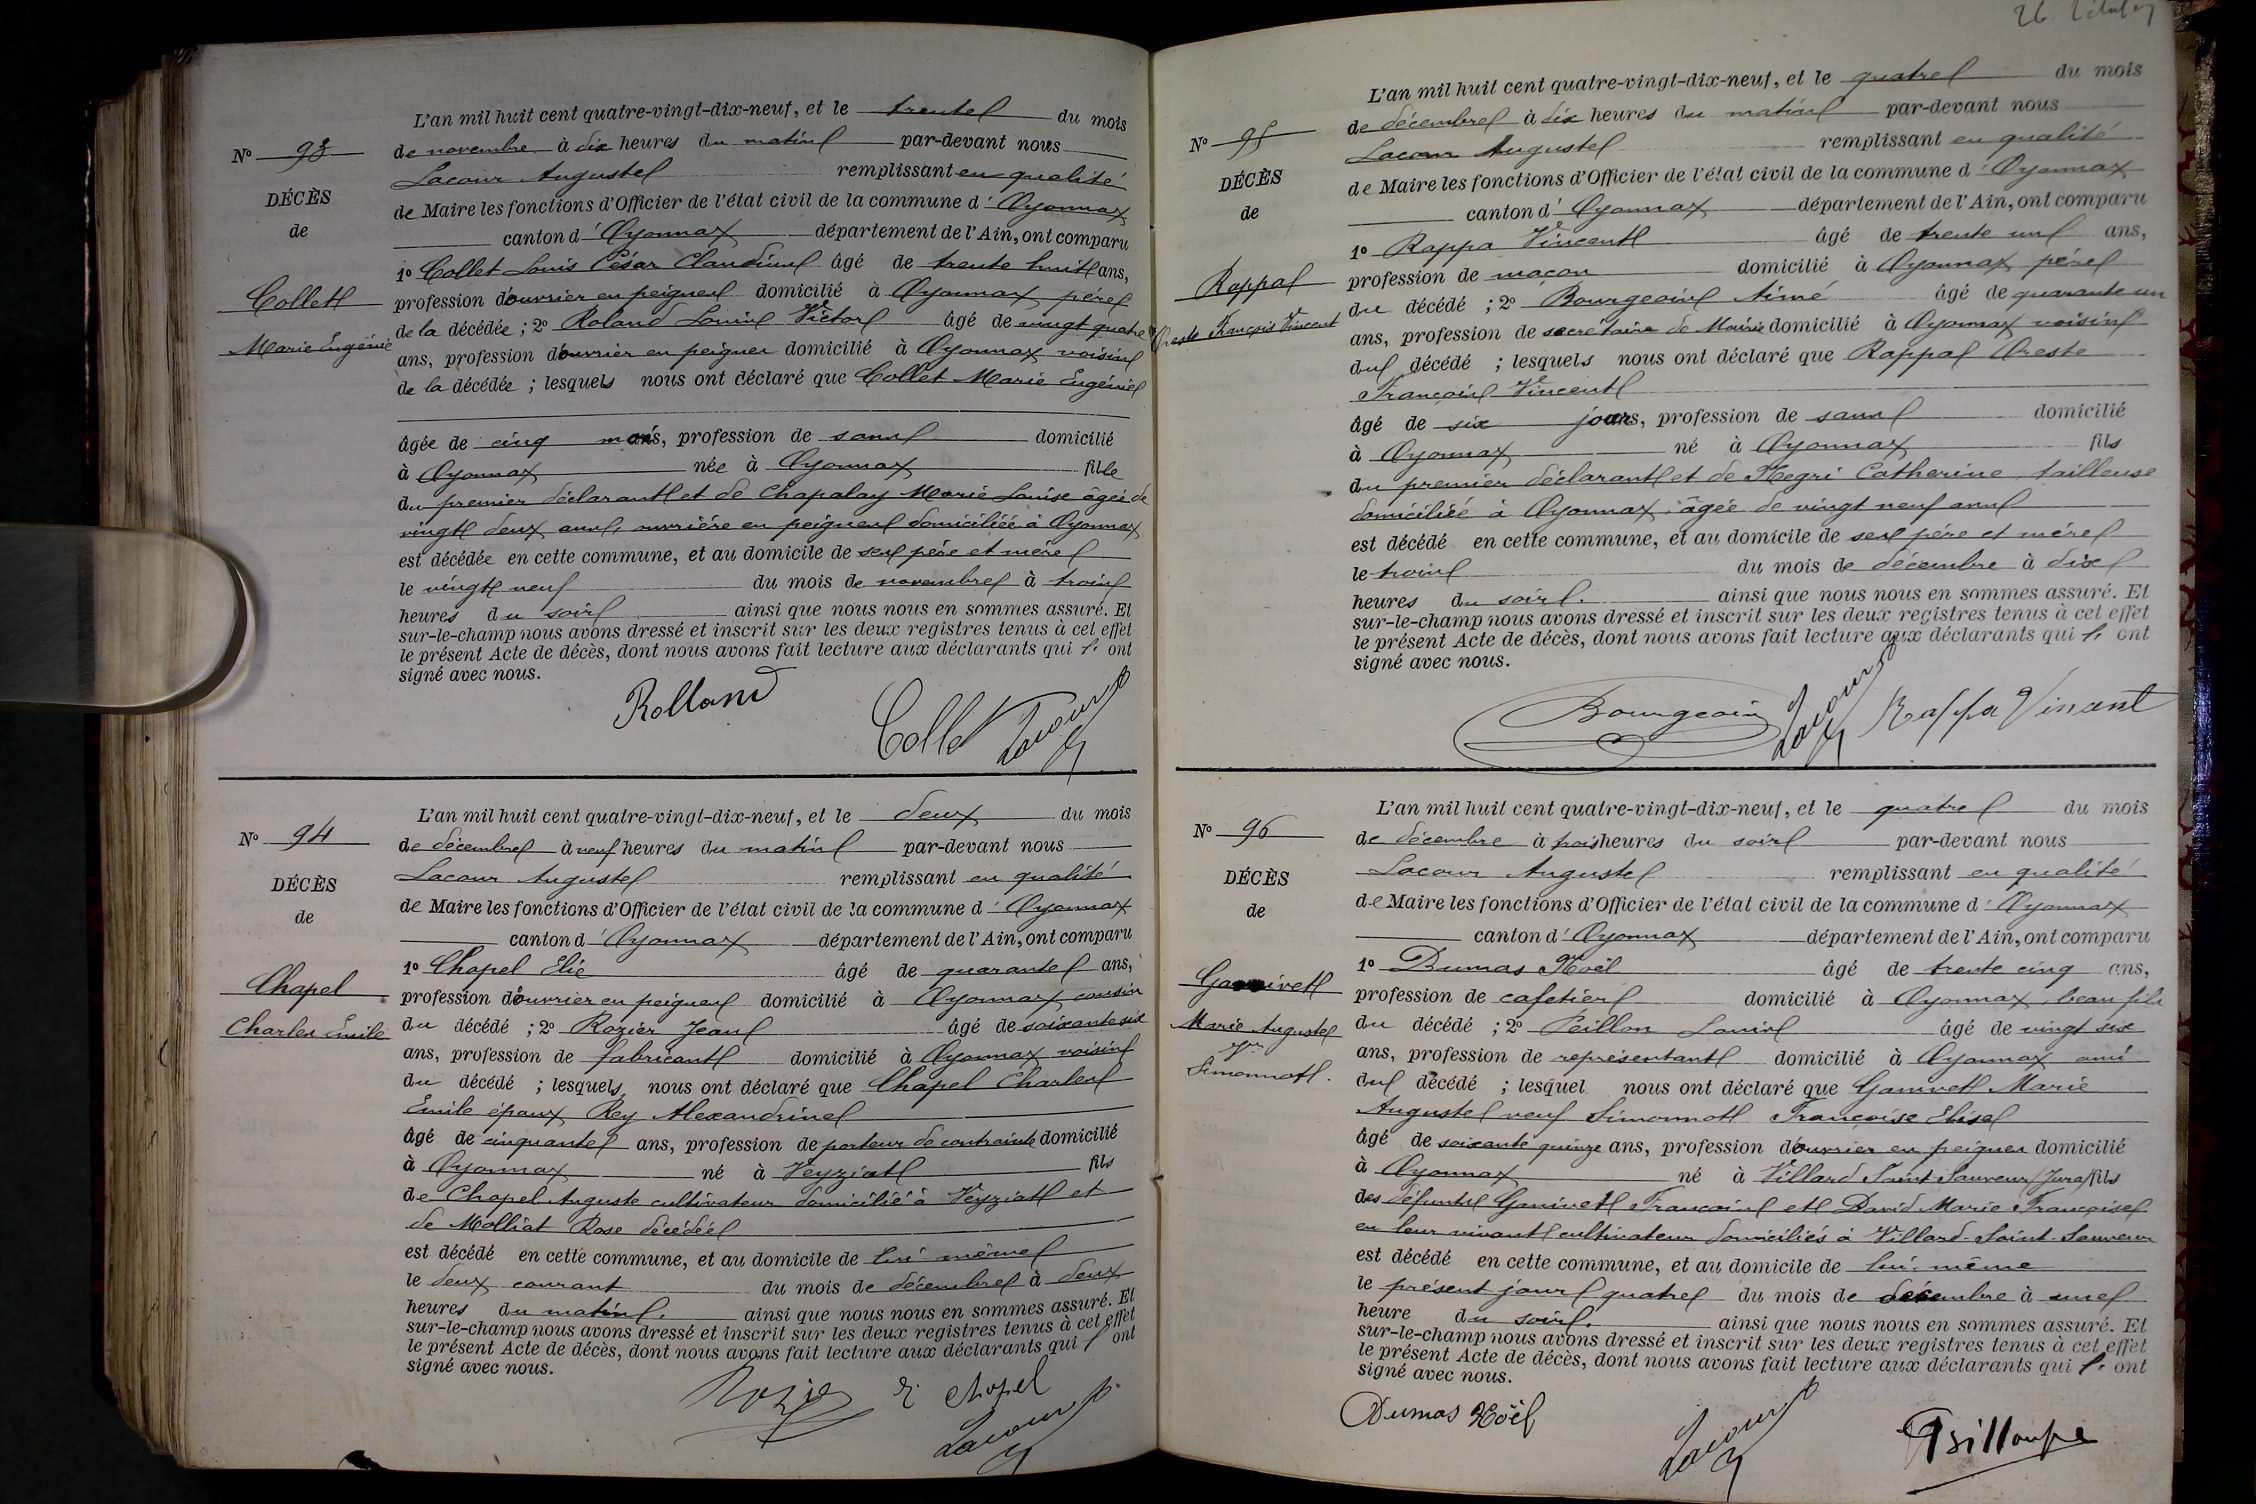 L'an mil huit cent quatre-vingt-dix-neuf, et le trente du mois
de novembre à dix heures du matin par-devant nous
Lacour Auguste remplissant en qualité
de Maire les fonctions d'Officier de l'état civil de la commune d'Oyonnax
canton d'Oyonnax département de l'Ain, ont comparu
1º Collet Louis César Claudius âgé de trente huit ans,
profession d'ouvrier en peignes domicilié à Oyonnax père
de la décédée ; 2º Roland Louis Victor âgé de vingt quatre
ans, profession d'ouvrier en peignes domicilié à Oyonnax voisin
de la décédée ; lesquels nous ont déclaré que Collet Marie Eugénie
âgée de cinq mois, profession de sans domicilié
à Oyonnax née à Oyonnax fille
du premier déclarant et de Chapalay Marie Louise âgée de
vingt deux ans, ouvrière en peignes domiciliée à Oyonnax
est décédée en cette commune, et au domicile de ses père et mère
le vingt neuf du mois de novembre à trois
heures du soir ainsi que nous nous en sommes assuré. Et
sur-le-champ nous avons dressé et inscrit sur les deux registres tenus à cet effet
le présent Acte de décès, dont nous avons fait lecture aux déclarants qui ont
signé avec nous.
Rolland Collet Lacour
Nº 93
DÉCÈS
de
Collet
Marie Eugénie
L'an mil huit cent quatre-vingt-dix-neuf, et le deux du mois
de décembre à neuf heures du matin par-devant nous
Lacour Auguste remplissant en qualité
de Maire les fonctions d'Officier de l'état civil de la commune d'Oyonnax
canton d'Oyonnax département de l'Ain, ont comparu
1º Chapel Elie âgé de quarante ans,
profession d'ouvrier en peignes domicilié à Oyonnax cousin
du décédé ; 2º Rozier Jean âgé de soixante six
ans, profession de fabricant domicilié à Oyonnax voisin
du décédé ; lesquels nous ont déclaré que Chapel Charles
Emile époux Rey Alexandrine
âgé de cinquante ans, profession de porteur de contrainte domicilié
à Oyonnax né à Veyziat fils
de Chapel Auguste cultivateur domicilié à Veyziat et
de Molliat Rose décédée
est décédé en cette commune, et au domicile de lui même
le deux courant du mois de décembre à deux
heures du matin. ainsi que nous nous en sommes assuré. Et
sur-le-champ nous avons dressé et inscrit sur les deux registres tenus à cet effet
le présent Acte de décès, dont nous avons fait lecture aux déclarants qui ont
signé avec nous.
Rozier E Chapel
Lacour
Nº 94
DÉCÈS
de
Chapel
Charles Emile
L'an mil huit cent quatre-vingt-dix-neuf, et le quatre du mois
de décembre à dix heures du matin par-devant nous
Lacour Auguste remplissant en qualité
de Maire les fonctions d'Officier de l'état civil de la commune d'Oyonnax
canton d'Oyonnax département de l'Ain, ont comparu
1º Rappa Vincent âgé de trente un ans,
profession de maçon domicilié à Oyonnax père
du décédé ; 2º Bourgeois Aimé âgé de quarante un
ans, profession de secrétaire de Mairie domicilié à Oyonnax voisin
du décédé ; lesquels nous ont déclaré que Rappa Oreste
François Vincent
âgé de six jours, profession de sans domicilié
à Oyonnax né à Oyonnax fils
du premier déclarant et de Negri Catherine tailleuse
domiciliée à Oyonnax âgée de vingt neuf ans
est décédé en cette commune, et au domicile de ses père et mère
le trois du mois de décembre à dix
heures du soir. ainsi que nous nous en sommes assuré. Et
sur-le-champ nous avons dressé et inscrit sur les deux registres tenus à cet effet
le présent Acte de décès, dont nous avons fait lecture aux déclarants qui ont
signé avec nous.
Bourgeois Lacour Rappa Vincent
Nº 95
DÉCÈS
de
Rappa
Oreste François Vincent
L'an mil huit cent quatre-vingt-dix-neuf, et le quatre du mois
de décembre à trois heures du soir par-devant nous
Lacour Auguste remplissant en qualité
de Maire les fonctions d'Officier de l'état civil de la commune d'Oyonnax
canton d'Oyonnax département de l'Ain, ont comparu
1º Dumas Noël âgé de trente cinq ans,
profession de cafetier domicilié à Oyonnax beau fils
du décédé ; 2º Peillon Louis âgé de vingt six
ans, profession de représentant domicilié à Oyonnax ami
du décédé ; lesquel nous ont déclaré que Ganivet Marie
Auguste veuf Simonnot Françoise Elisa
âgé de soixante quinze ans, profession d'ouvrier en peignes domicilié
à Oyonnax né à Villard Saint Sauveur (Jura) fils
des défunts Ganivet François et David Marie Françoise
en leur vivant cultivateurs domiciliés à Villard-Saint-Sauveur
est décédé en cette commune, et au domicile de lui-même
le présent jour quatre du mois de décembre à une
heure du soir. ainsi que nous nous en sommes assuré. Et
sur-le-champ nous avons dressé et inscrit sur les deux registres tenus à cet effet
le présent Acte de décès, dont nous avons fait lecture aux déclarants qui ont
signé avec nous.
Dumas Noël Lacour
Nº 96
DÉCÈS
de
Ganivet
Marie Auguste
Vf
Simonnot.